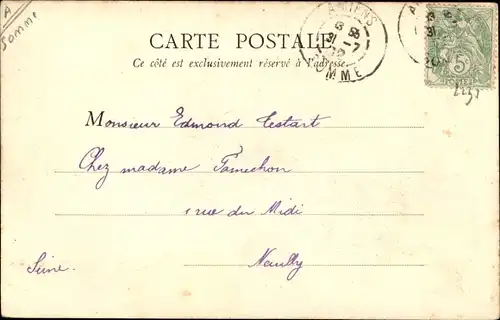 A
Somme
CARTE POSTALE
Ce côté est exclusivement réservé à l'adresse
AMIENS
SOMME
5c
POSTES
Monsieur Edmond Testart
Chez madame Famechon
1 rue du Midi
Neuilly
Seine